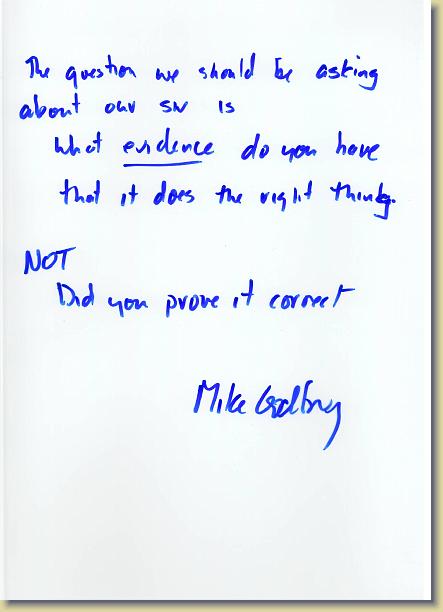 The question we should be asking
about our SW is
what evidence do you have
that it does the right thing.
NOT
Did you prove it correct
Mike Godfrey